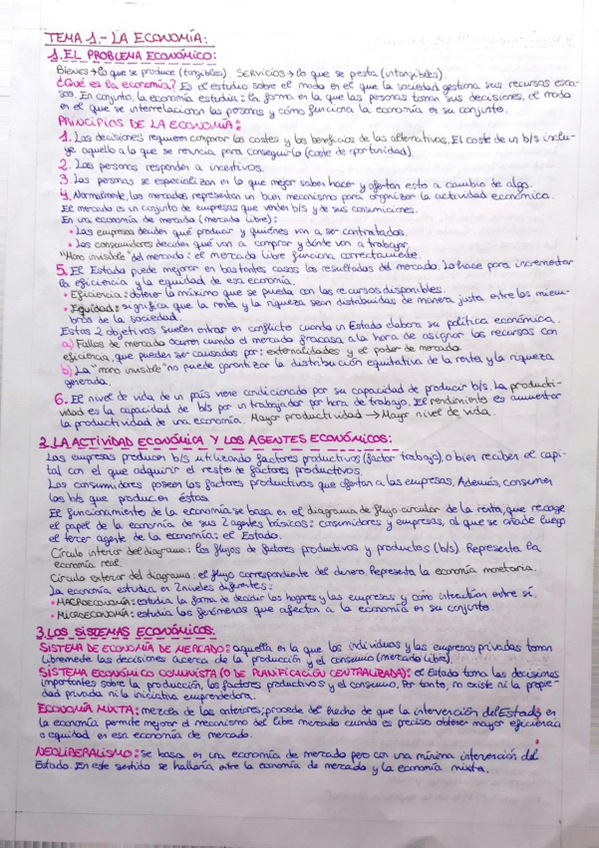 TEMA 1.- LA ECONOMÍA:
1. EL PROBLEMA ECONÓMICO:
BIENES → lo que se produce (tangibles). SERVICIOS → lo que se presta (intangibles).
¿Qué es la economía? Es el estudio sobre el modo en el que la sociedad gestiona sus recursos esca-
sos. En conjunto, la economía estudia: la forma en la que las personas toman sus decisiones, el modo
en el que se interrelacionan las personas y cómo funciona la economía en su conjunto.
PRINCIPIOS DE LA ECONOMÍA:
1. Las decisiones requieren comparar los costes y los beneficios de las alternativas. El coste de un b/s inclu-
ye aquello a lo que se renuncia para conseguirlo (coste de oportunidad).
2. Las personas responden a incentivos.
3 Las personas se especializan en lo que mejor saben hacer y ofertan esto a cambio de algo.
4. Normalmente, los mercados representan un buen mecanismo para organizar la actividad económica.
El mercado es un conjunto de empresas que venden b/s y de sus consumiciones.
En una economía de mercado (mercado libre):
• Las empresas deciden qué producir y quiénes van a ser contratados.
• Los consumidores deciden qué van a comprar y dónde van a trabajar.
"Mano invisible" del mercado: el mercado libre funciona correctamente.
5. El Estado puede mejorar en bastantes casos los resultados del mercado. Lo hace para incrementar
la eficiencia y la equidad de esa economía.
• Eficiencia: obtener lo máximo que se pueda con los recursos disponibles.
• Equidad: significa que la renta y la riqueza sean distribuidas de manera justa entre los miem-
bros de la sociedad.
Estos 2 objetivos suelen entrar en conflicto cuando un Estado elabora su política económica.
a) Fallos de mercado: ocurren cuando el mercado fracasa a la hora de asignar los recursos con
eficiencia, que pueden ser causados por: externalidades y el poder de mercado.
b) La "mano invisible" no puede garantizar la distribución equitativa de la renta y la riqueza
generada.
6. El nivel de vida de un país viene condicionado por su capacidad de producir b/s. La producti-
vidad es la capacidad de b/s por un trabajador por hora de trabajo. El rendimiento es aumentar
la productividad de una economía. Mayor productividad → Mayor nivel de vida.
2. LA ACTIVIDAD ECONÓMICA Y LOS AGENTES ECONÓMICOS:
Las empresas producen b/s utilizando factores productivos (factor trabajo), o bien reciben el capi-
tal con el que adquirir el resto de factores productivos.
Los consumidores poseen los factores productivos que ofertan a las empresas. Además, consumen
los b/s que producen éstas.
El funcionamiento de la economía se basa en el diagrama de flujo circular de la renta, que recoge
el papel de la economía de sus 2 agentes básicos: consumidores y empresas, al que se añade luego
el tercer agente de la economía: el Estado.
Círculo interior del diagrama: los flujos de factores productivos y productos (b/s). Representa la
economía real.
Círculo exterior del diagrama: el flujo correspondiente del dinero. Representa la economía monetaria.
La economía estudia en 2 niveles diferentes:
• MACROECONOMÍA: estudia la forma de decidir los hogares y las empresas y cómo interactúan entre sí.
• MICROECONOMÍA: estudia los fenómenos que afectan a la economía en su conjunto.
3. LOS SISTEMAS ECONÓMICOS:
SISTEMA DE ECONOMÍA DE MERCADO: aquella en la que los individuos y las empresas privadas toman
libremente las decisiones acerca de la producción y el consumo (mercado libre).
SISTEMA ECONÓMICO COMUNISTA (O DE PLANIFICACIÓN CENTRALIZADA): el Estado toma las decisiones
importantes sobre la producción, los factores productivos y el consumo. Por tanto, no existe ni la propie-
dad privada ni la iniciativa emprendedora.
ECONOMÍA MIXTA: mezcla de las anteriores; procede del hecho de que la intervención del Estado en
la economía permite mejorar el mecanismo del libre mercado cuando es preciso obtener mayor eficiencia
o equidad en esa economía de mercado.
NEOLIBERALISMO: se basa en una economía de mercado pero con una mínima intervención del
Estado. En este sentido se hallaría entre la economía de mercado y la economía mixta.